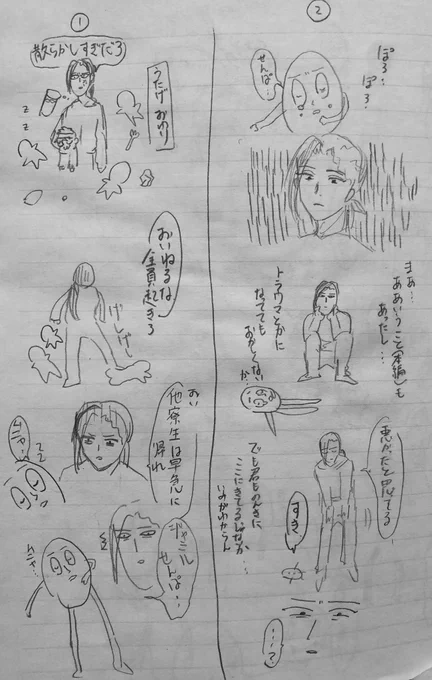 ①
散らかしすぎだろ
うたげ おわり
z
z
おいねるな
全員起きろ
げしげし
おい
他寮生は早急に
帰れ
ムニャ…
ジャミル
せんぱ…
ムニャ…
②
ぽろ…
ぽろ…
せんぱ…
まぁ…
ああいうこと(本編)も
あったし…
トラウマとかに
なってても
おかしくない
か…
悪かったと思ってる
すき
でも君ものんきに
ここにきてるじゃないか…
いみがわからん
…て